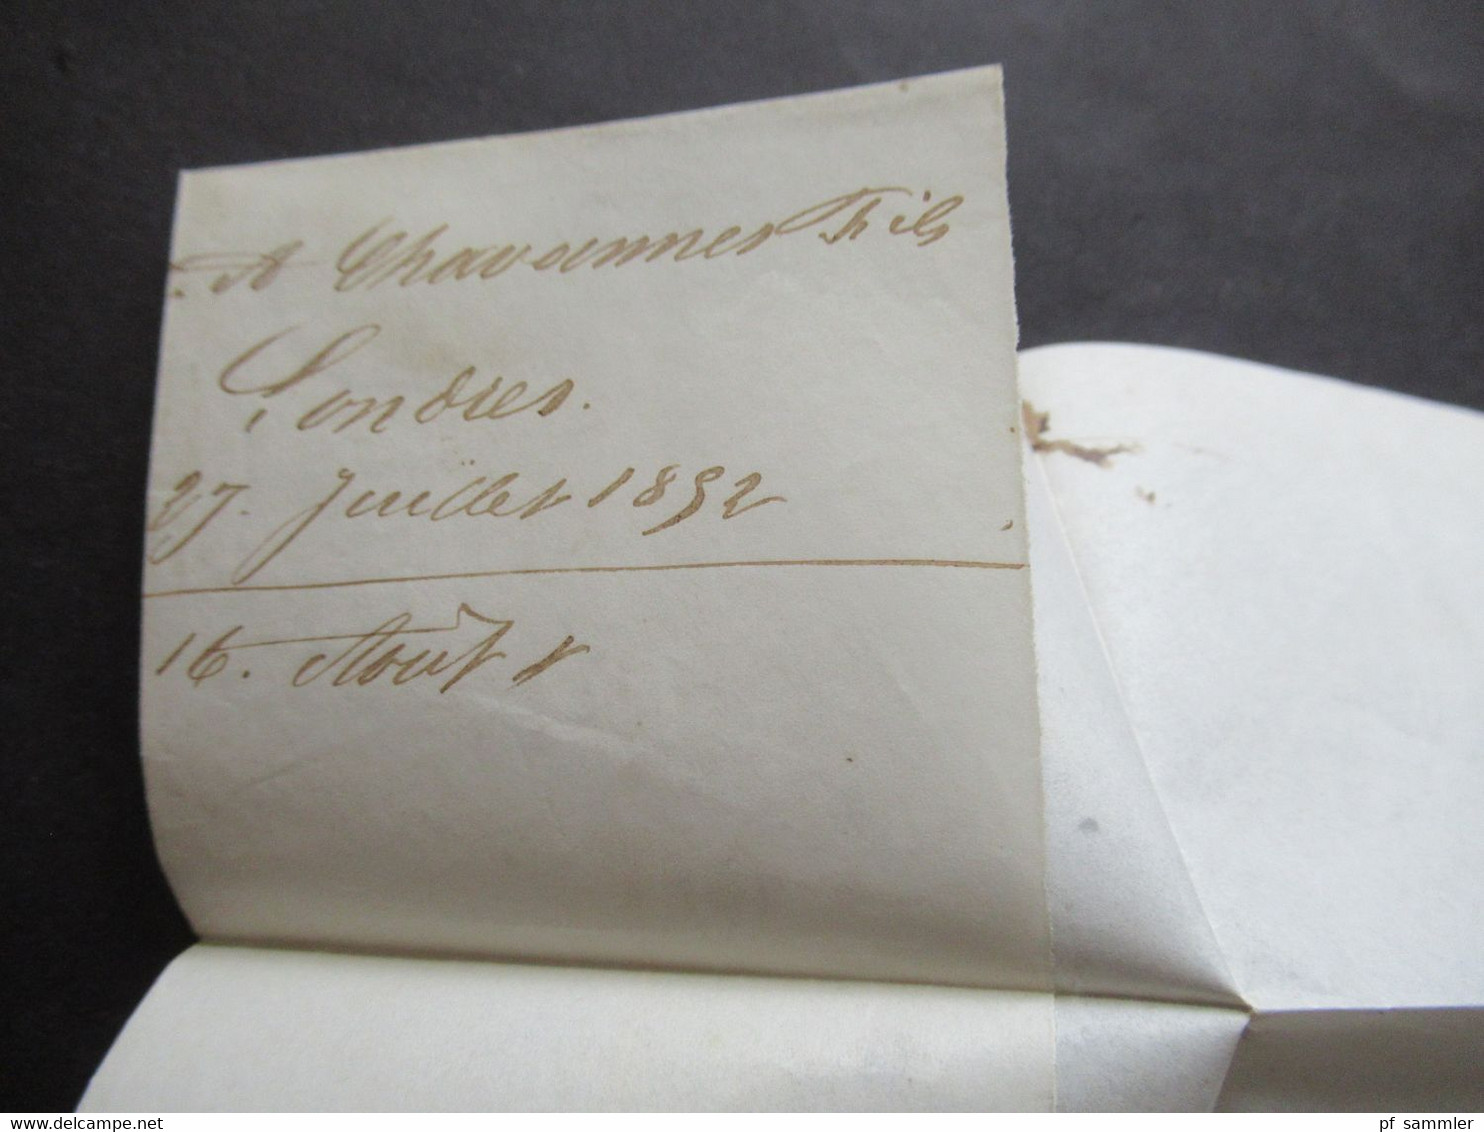 A Chavannes Fils
Londres.
27. Juillet 1852
16. Août
www.delcampe.net
pf_sammler